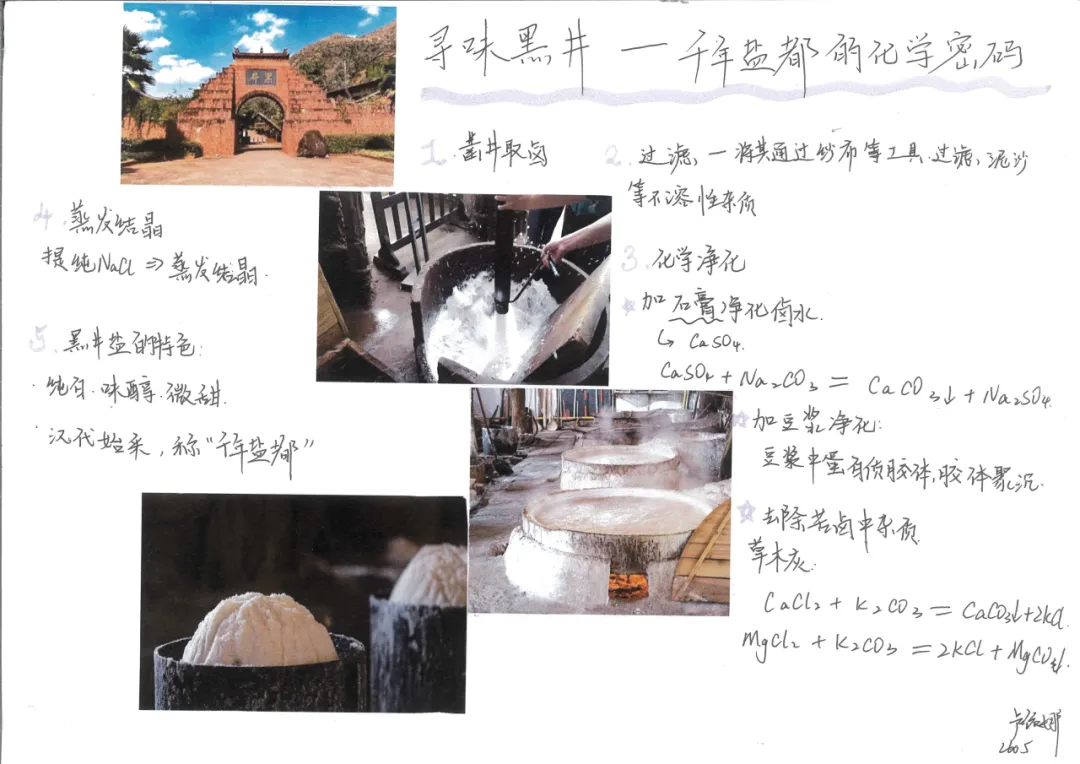 寻味黑井 — 千年盐都的化学密码
黑井
1. 凿井取卤
2. 过滤、一将其通过纱布等工具过滤，泥沙
等不溶性杂质
3. 化学净化
☆ 加石膏净化卤水.
↳ CaSO4.
CaSO4 + Na2CO3 = CaCO3↓ + Na2SO4.
☆ 加豆浆净化:
豆浆中蛋白质胶体,胶体聚沉.
☆ 去除苦卤中杂质
草木灰:
CaCl2 + K2CO3 = CaCO3↓ + 2KCl.
MgCl2 + K2CO3 = 2KCl + MgCO3↓.
4. 蒸发结晶
提纯NaCl ⇒ 蒸发结晶.
5. 黑井盐的特色:
· 纯白. 味醇. 微甜.
· 汉代始采，称“千年盐都”
2605